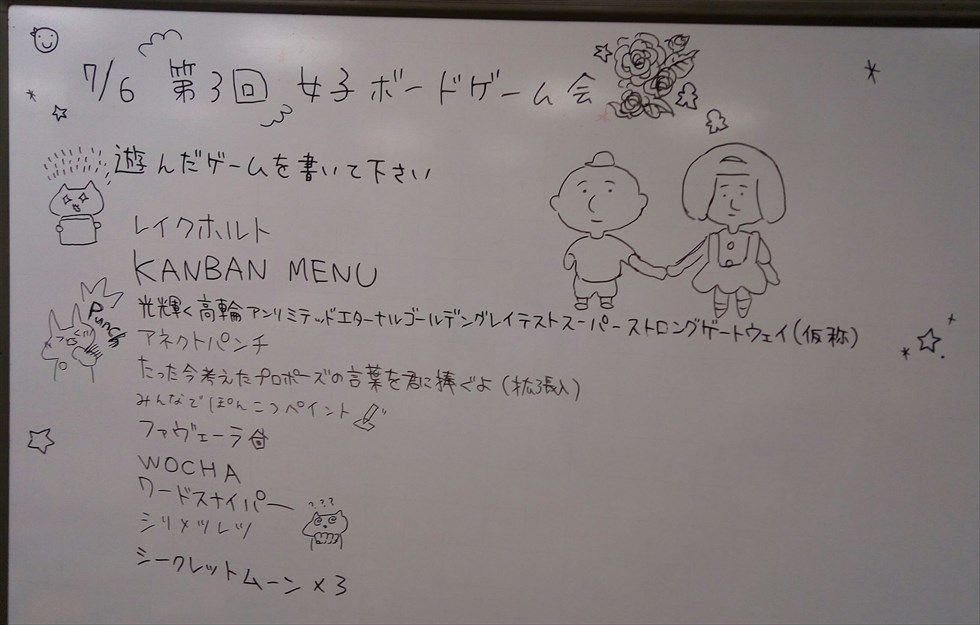 7/6 第3回 女子ボードゲーム会
遊んだゲームを書いて下さい
レイクホルト
KANBAN MENU
光輝く高輪アンリミテッドエターナルゴールデングレイテストスーパーストロングゲートウェイ(仮称)
Punch
アネクトパンチ
たった今考えたプロポーズの言葉を君に捧ぐよ(拡張入)
みんなでぽんこつペイント
ファヴェーラ
WOCHA
ワードスナイパー
???
シリメツレツ
シークレットムーン×3